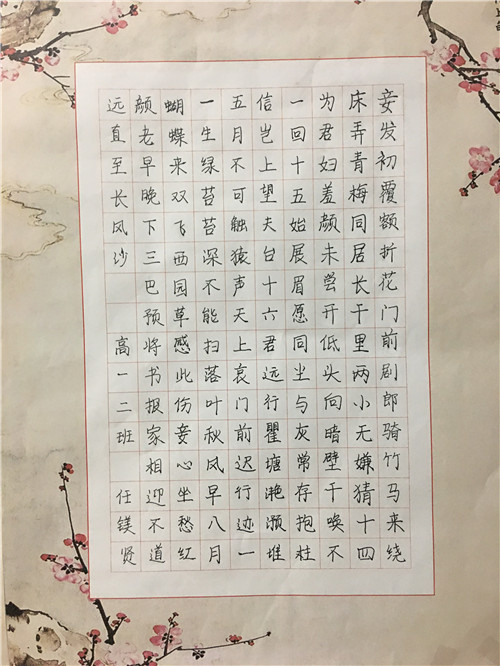 妾发初覆额折花门前剧郎骑竹马来绕
床弄青梅同居长干里两小无嫌猜十四
为君妇羞颜未尝开低头向暗壁千唤不
一回十五始展眉愿同尘与灰常存抱柱
信岂上望夫台十六君远行瞿塘滟滪堆
五月不可触猿声天上哀门前迟行迹一
一生绿苔苔深不能扫落叶秋风早八月
蝴蝶来双飞西园草感此伤妾心坐愁红
颜老早晚下三巴预将书报家相迎不道
远直至长风沙 高一二班 任镁贤